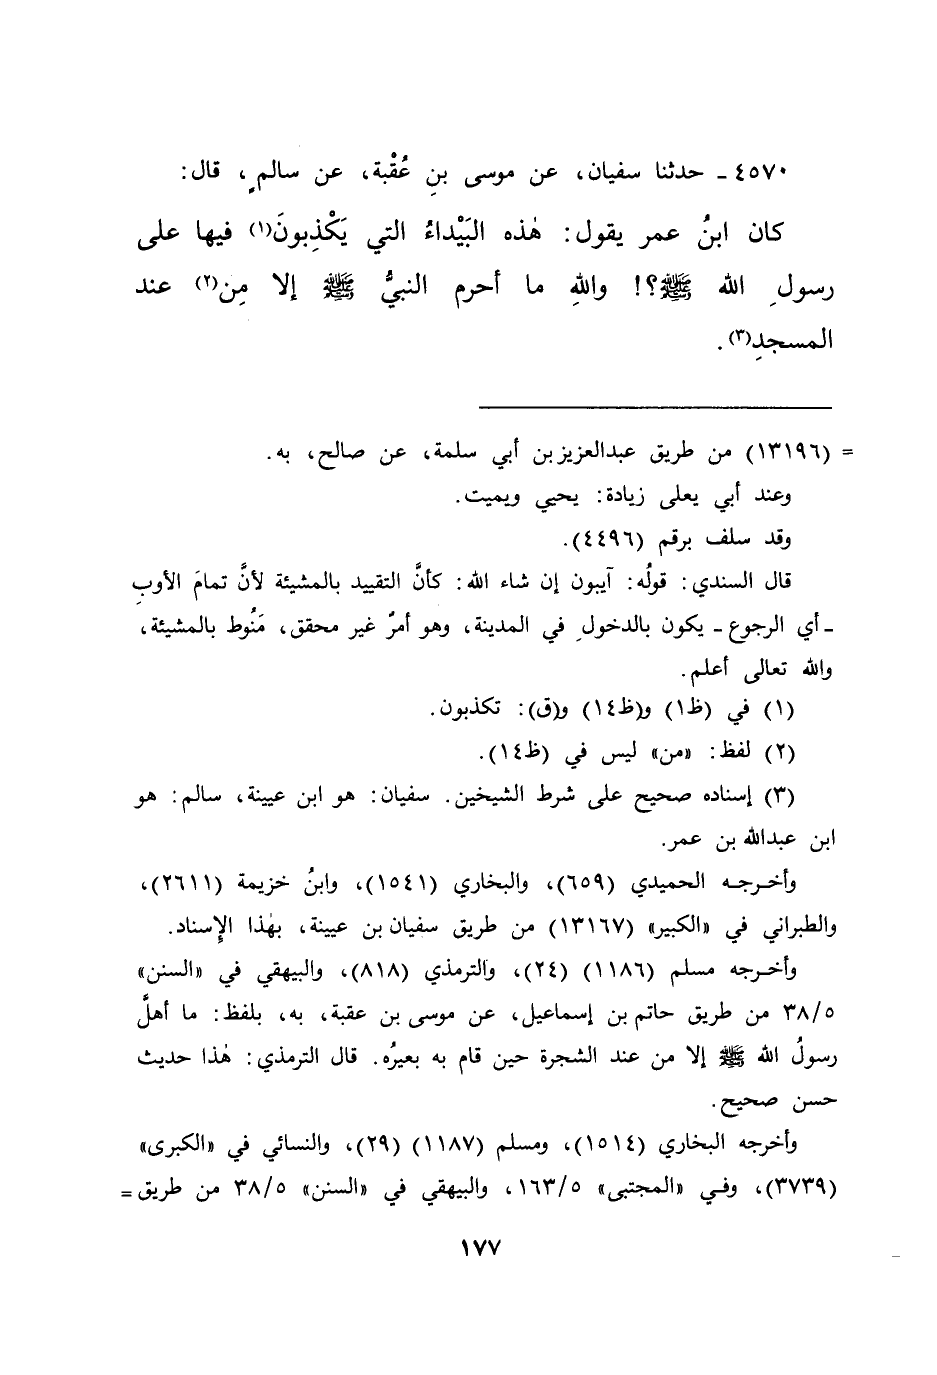 ٤٥٧٠ ـ حدثنا سفيان، عن موسى بنِ عُقْبة، عن سالمٍ، قال:
كان ابنُ عمر يقول: هٰذه البَيْداءُ التي يَكْذِبونَ(١) فيها على
رسولِ الله ﷺ؟! واللهِ ما أحرم النبيُّ ﷺ إلا مِن(٢) عند
المسجدِ(٣).
= (١٣١٩٦) من طريق عبدالعزيز بن أبي سلمة، عن صالح، به.
وعند أبي يعلى زيادة: يحيي ويميت.
وقد سلف برقم (٤٤٩٦).
قال السندي: قولُه: آيبون إن شاء الله: كأنَّ التقييد بالمشيئة لأنَّ تمامَ الأوبِ
ـ أي الرجوع ـ يكون بالدخولِ في المدينة، وهو أمرٌ غير محقق، مَنُوط بالمشيئة،
والله تعالى أعلم.
(١) في (ظ١) و(ظ١٤) و(ق): تكذبون.
(٢) لفظ: «من» ليس في (ظ١٤).
(٣) إسناده صحيح على شرط الشيخين. سفيان: هو ابن عيينة، سالم: هو
ابن عبدالله بن عمر.
وأخرجه الحميدي (٦٥٩)، والبخاري (١٥٤١)، وابنُ خزيمة (٢٦١١)،
والطبراني في «الكبير» (١٣١٦٧) من طريق سفيان بن عيينة، بهٰذا الإِسناد.
وأخرجه مسلم (١١٨٦) (٢٤)، والترمذي (٨١٨)، والبيهقي في «السنن»
٣٨/٥ من طريق حاتم بن إسماعيل، عن موسى بن عقبة، به، بلفظ: ما أهلَّ
رسولُ الله ﷺ إلا من عند الشجرة حين قام به بعيرُه. قال الترمذي: هٰذا حديث
حسن صحيح.
وأخرجه البخاري (١٥١٤)، ومسلم (١١٨٧) (٢٩)، والنسائي في «الكبرى»
(٣٧٣٩)، وفي «المجتبى» ١٦٣/٥، والبيهقي في «السنن» ٣٨/٥ من طريق =
١٧٧